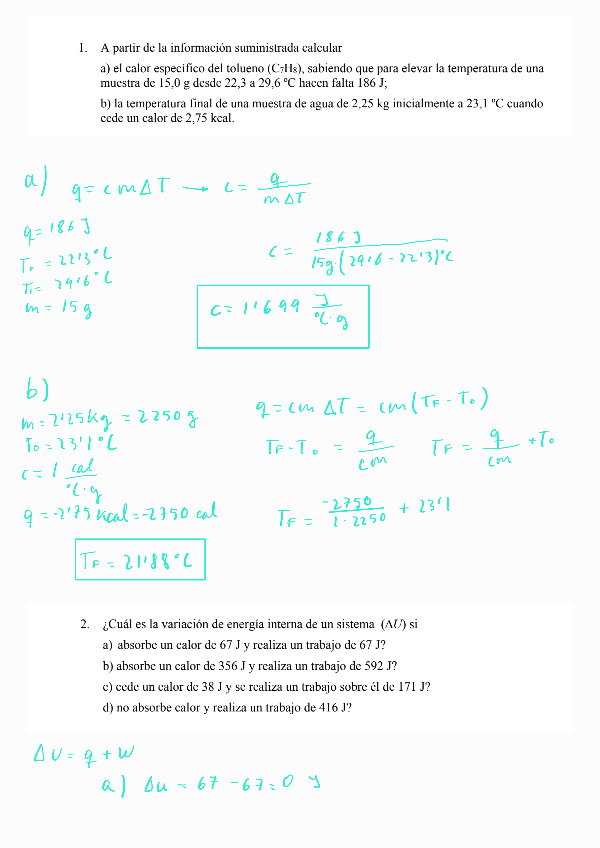 1. A partir de la información suministrada calcular
a) el calor específico del tolueno (C₇H₈), sabiendo que para elevar la temperatura de una
muestra de 15,0 g desde 22,3 a 29,6 ºC hacen falta 186 J;
b) la temperatura final de una muestra de agua de 2,25 kg inicialmente a 23,1 ºC cuando
cede un calor de 2,75 kcal.
a) q = c m ΔT → c = q / m ΔT
q = 186 J
T₀ = 22'3 °C
T₁ = 29'6 °C
m = 15 g
c = 186 J / 15g (29'6 - 22'3) °C
c = 1'699 J / °C · g
b)
m = 2'25 kg = 2250 g
T₀ = 23'1 °C
c = 1 cal / °C · g
q = -2'75 kcal = -2750 cal
q = cm ΔT = cm (TF - T₀)
TF - T₀ = q / cm TF = q / cm + T₀
TF = -2750 / 1 · 2250 + 23'1
TF = 21'88 °C
2. ¿Cuál es la variación de energía interna de un sistema (ΔU) si
a) absorbe un calor de 67 J y realiza un trabajo de 67 J?
b) absorbe un calor de 356 J y realiza un trabajo de 592 J?
c) cede un calor de 38 J y se realiza un trabajo sobre él de 171 J?
d) no absorbe calor y realiza un trabajo de 416 J?
ΔU = q + W
a) Δu = 67 - 67 = 0 J